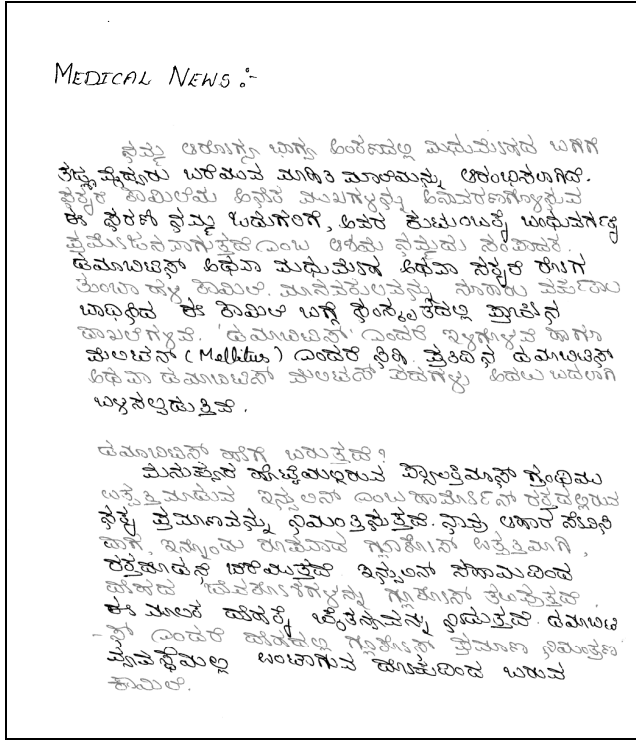 MEDICAL NEWS :-
ನಮ್ಮ ಆರೋಗ್ಯ ಭಾಗ್ಯ ಅಂಕಣದಲ್ಲಿ ಮಧುಮೇಹದ ಬಗೆಗೆ
ತಜ್ಞ ವೈದ್ಯರು ಬರೆಯುವ ಮಾಹಿತಿ ಮಾಲೆಯನ್ನು ಆರಂಭಿಸಲಾಗಿದೆ.
ಸಕ್ಕರೆ ಕಾಯಿಲೆಯ ಅನೇಕ ಮುಖಗಳನ್ನು ಅನಾವರಣಗೊಳಿಸುವ
ಈ ಸರಣಿ ನಮ್ಮ ಓದುಗರಿಗೆ, ಅವರ ಕುಟುಂಬಕ್ಕೆ ಬಂಧುವರ್ಗಕ್ಕೆ
ಪ್ರಯೋಜನವಾಗುತ್ತದೆ ಎಂಬ ಆಶಯ ನಮ್ಮದು ಸಂಪಾದಕ.
ಡಯಾಬಿಟಿಸ್ ಅಥವಾ ಮಧುಮೇಹ ಅಥವಾ ಸಕ್ಕರೆ ರೋಗ
ತುಂಬಾ ಹಳೆ ಕಾಯಿಲೆ. ಮಾನವಕುಲವನ್ನು ನೂರಾರು ವರ್ಷಗಳು
ಬಾಧಿಸಿದ ಈ ಕಾಯಿಲೆ ಬಗ್ಗೆ ಸಂಸ್ಕೃತದಲ್ಲಿ ಪ್ರಾಚೀನ
ದಾಖಲೆಗಳಿವೆ. 'ಡಯಾಬಿಟಿಸ್' ಎಂದರೆ ಇಳಿಗೊಳಿವೆ ಹಾಗೂ
ಮೆಲಿಟಸ್ (Mellitus) ಎಂದರೆ ಸಿಹಿ. ಪ್ರತಿದಿನ ಡಯಾಬಿಟಿಸ್
ಅಥವಾ ಡಯಾಬಿಟಿಸ್ ಮೆಲಿಟಸ್ ಪದಗಳು ಅದಲು ಬದಲಾಗಿ
ಬಳಸಲ್ಪಡುತ್ತಿವೆ.
ಡಯಾಬಿಟಿಸ್ ಹೇಗೆ ಬರುತ್ತದೆ?
ಮನುಷ್ಯರ ಹೊಟ್ಟೆಯಲ್ಲಿರುವ ಪ್ಯಾಂಕ್ರಿಯಾಸ್ ಗ್ರಂಥಿಯು
ಉತ್ಪತ್ತಿಮಾಡುವ ಇನ್ಸುಲಿನ್ ಎಂಬ ಹಾರ್ಮೋನ್ ರಕ್ತದಲ್ಲಿರುವ
ಸಕ್ಕರೆ ಪ್ರಮಾಣವನ್ನು ನಿಯಂತ್ರಿಸುತ್ತದೆ. ನಾವು ಆಹಾರ ಸೇವಿಸಿ
ದಾಗ, ಇನ್ನೊಂದು ರೂಪವಾದ ಗ್ಲೂಕೋಸ್ ಉತ್ಪತ್ತಿಯಾಗಿ,
ರಕ್ತದೊಡನೆ ಬೆರೆಯುತ್ತದೆ. ಇನ್ಸುಲಿನ್ ಸಹಾಯದಿಂದ
ದೇಹದ ಜೀವಕೋಶಗಳನ್ನು ಗ್ಲೂಕೋಸ್ ತಲುಪುತ್ತದೆ.
ಈ ಮೂಲಕ ದೇಹಕ್ಕೆ ಚೈತನ್ಯವನ್ನು ನೀಡುತ್ತದೆ. ಡಯಾಬಿಟಿ
-ಸ್ ಎಂದರೆ ದೇಹದಲ್ಲಿ ಗ್ಲೂಕೋಸ್ ಪ್ರಮಾಣ ನಿಯಂತ್ರಣ
ವ್ಯವಸ್ಥೆಯಲ್ಲಿ ಉಂಟಾಗುವ ದೋಷದಿಂದ ಬರುವ
ಕಾಯಿಲೆ.